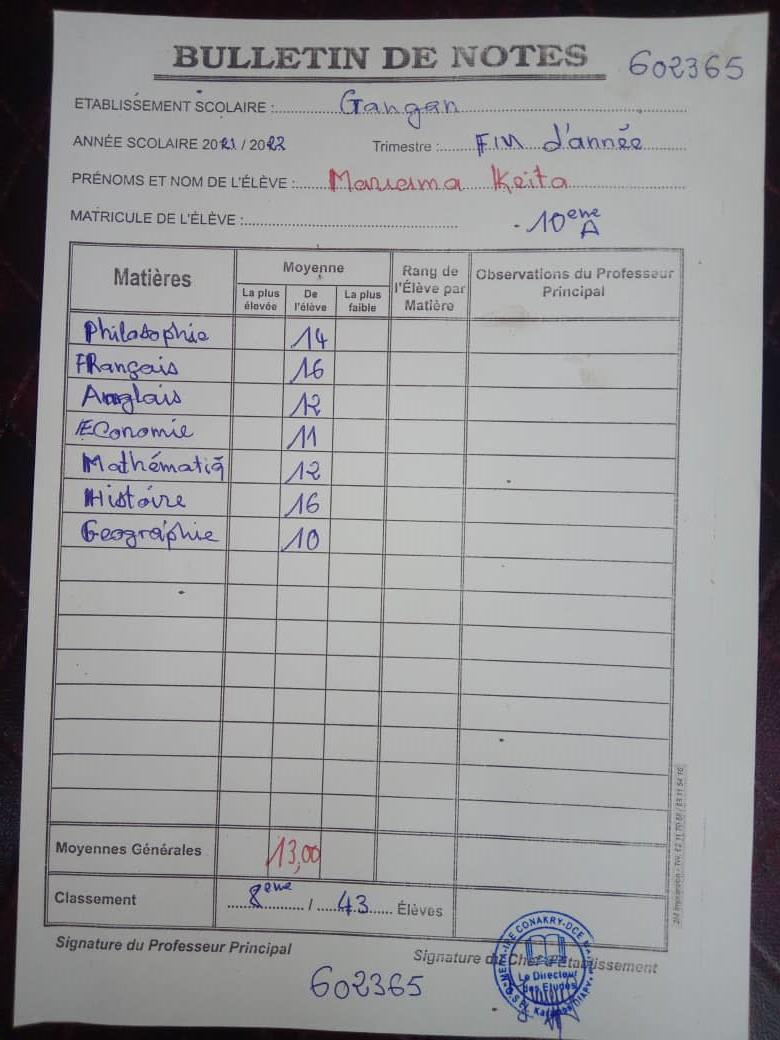 BULLETIN DE NOTES 602365
ETABLISSEMENT SCOLAIRE : Gangan
ANNÉE SCOLAIRE 2021 / 2022 Trimestre : FIN d'année
PRÉNOMS ET NOM DE L'ÉLÈVE : Mariama Keita
MATRICULE DE L'ÉLÈVE : 10eme
A
Matières Moyenne Rang de l'Élève par Matière Observations du Professeur Principal
La plus élevée De l'élève La plus faible
Philosophie 14
FRançais 16
Anglais 12
Economie 11
Mathématiq 12
Histoire 16
Geographie 10
Moyennes Générales 13,00
Classement 8eme / 43 Élèves
Signature du Professeur Principal Signature du Chef d'Etablissement
602365
Le Directeur
des Etudes